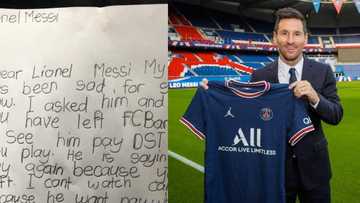 onel Messi
ear Lionel Messi My
s been sad, for
ow. I asked him and
ou have left FCBar
See him pay DST
u play. He is saying
y again because y
ft I cant watch ca
cause he want pay
LEO MESSI
All
ACCOR LIVE LIMITLESS